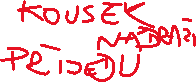 KOUSEK
NÁDRAŽÍ
PŘÍJEDU